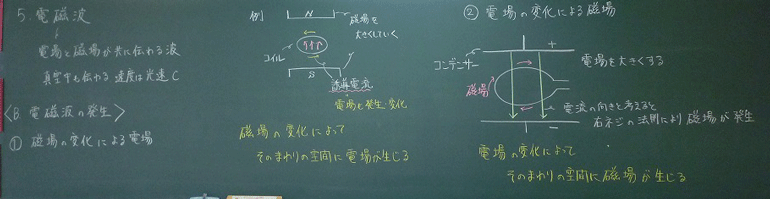 5. 電磁波
電場と磁場が共に伝わる波
真空中も伝わる 速度は光速 C
<B. 電磁波の発生>
① 磁場の変化による電場
例)
N
磁場を
大きくしていく
コイル
S
誘導電流
電場も発生、変化
磁場の変化によって
そのまわりの空間に電場が生じる
② 電場の変化による磁場
コンデンサー
+
電場を大きくする
磁場
電流の向きと考えると
右ネジの法則により磁場が発生
-
電場の変化によって
そのまわりの空間に磁場が生じる